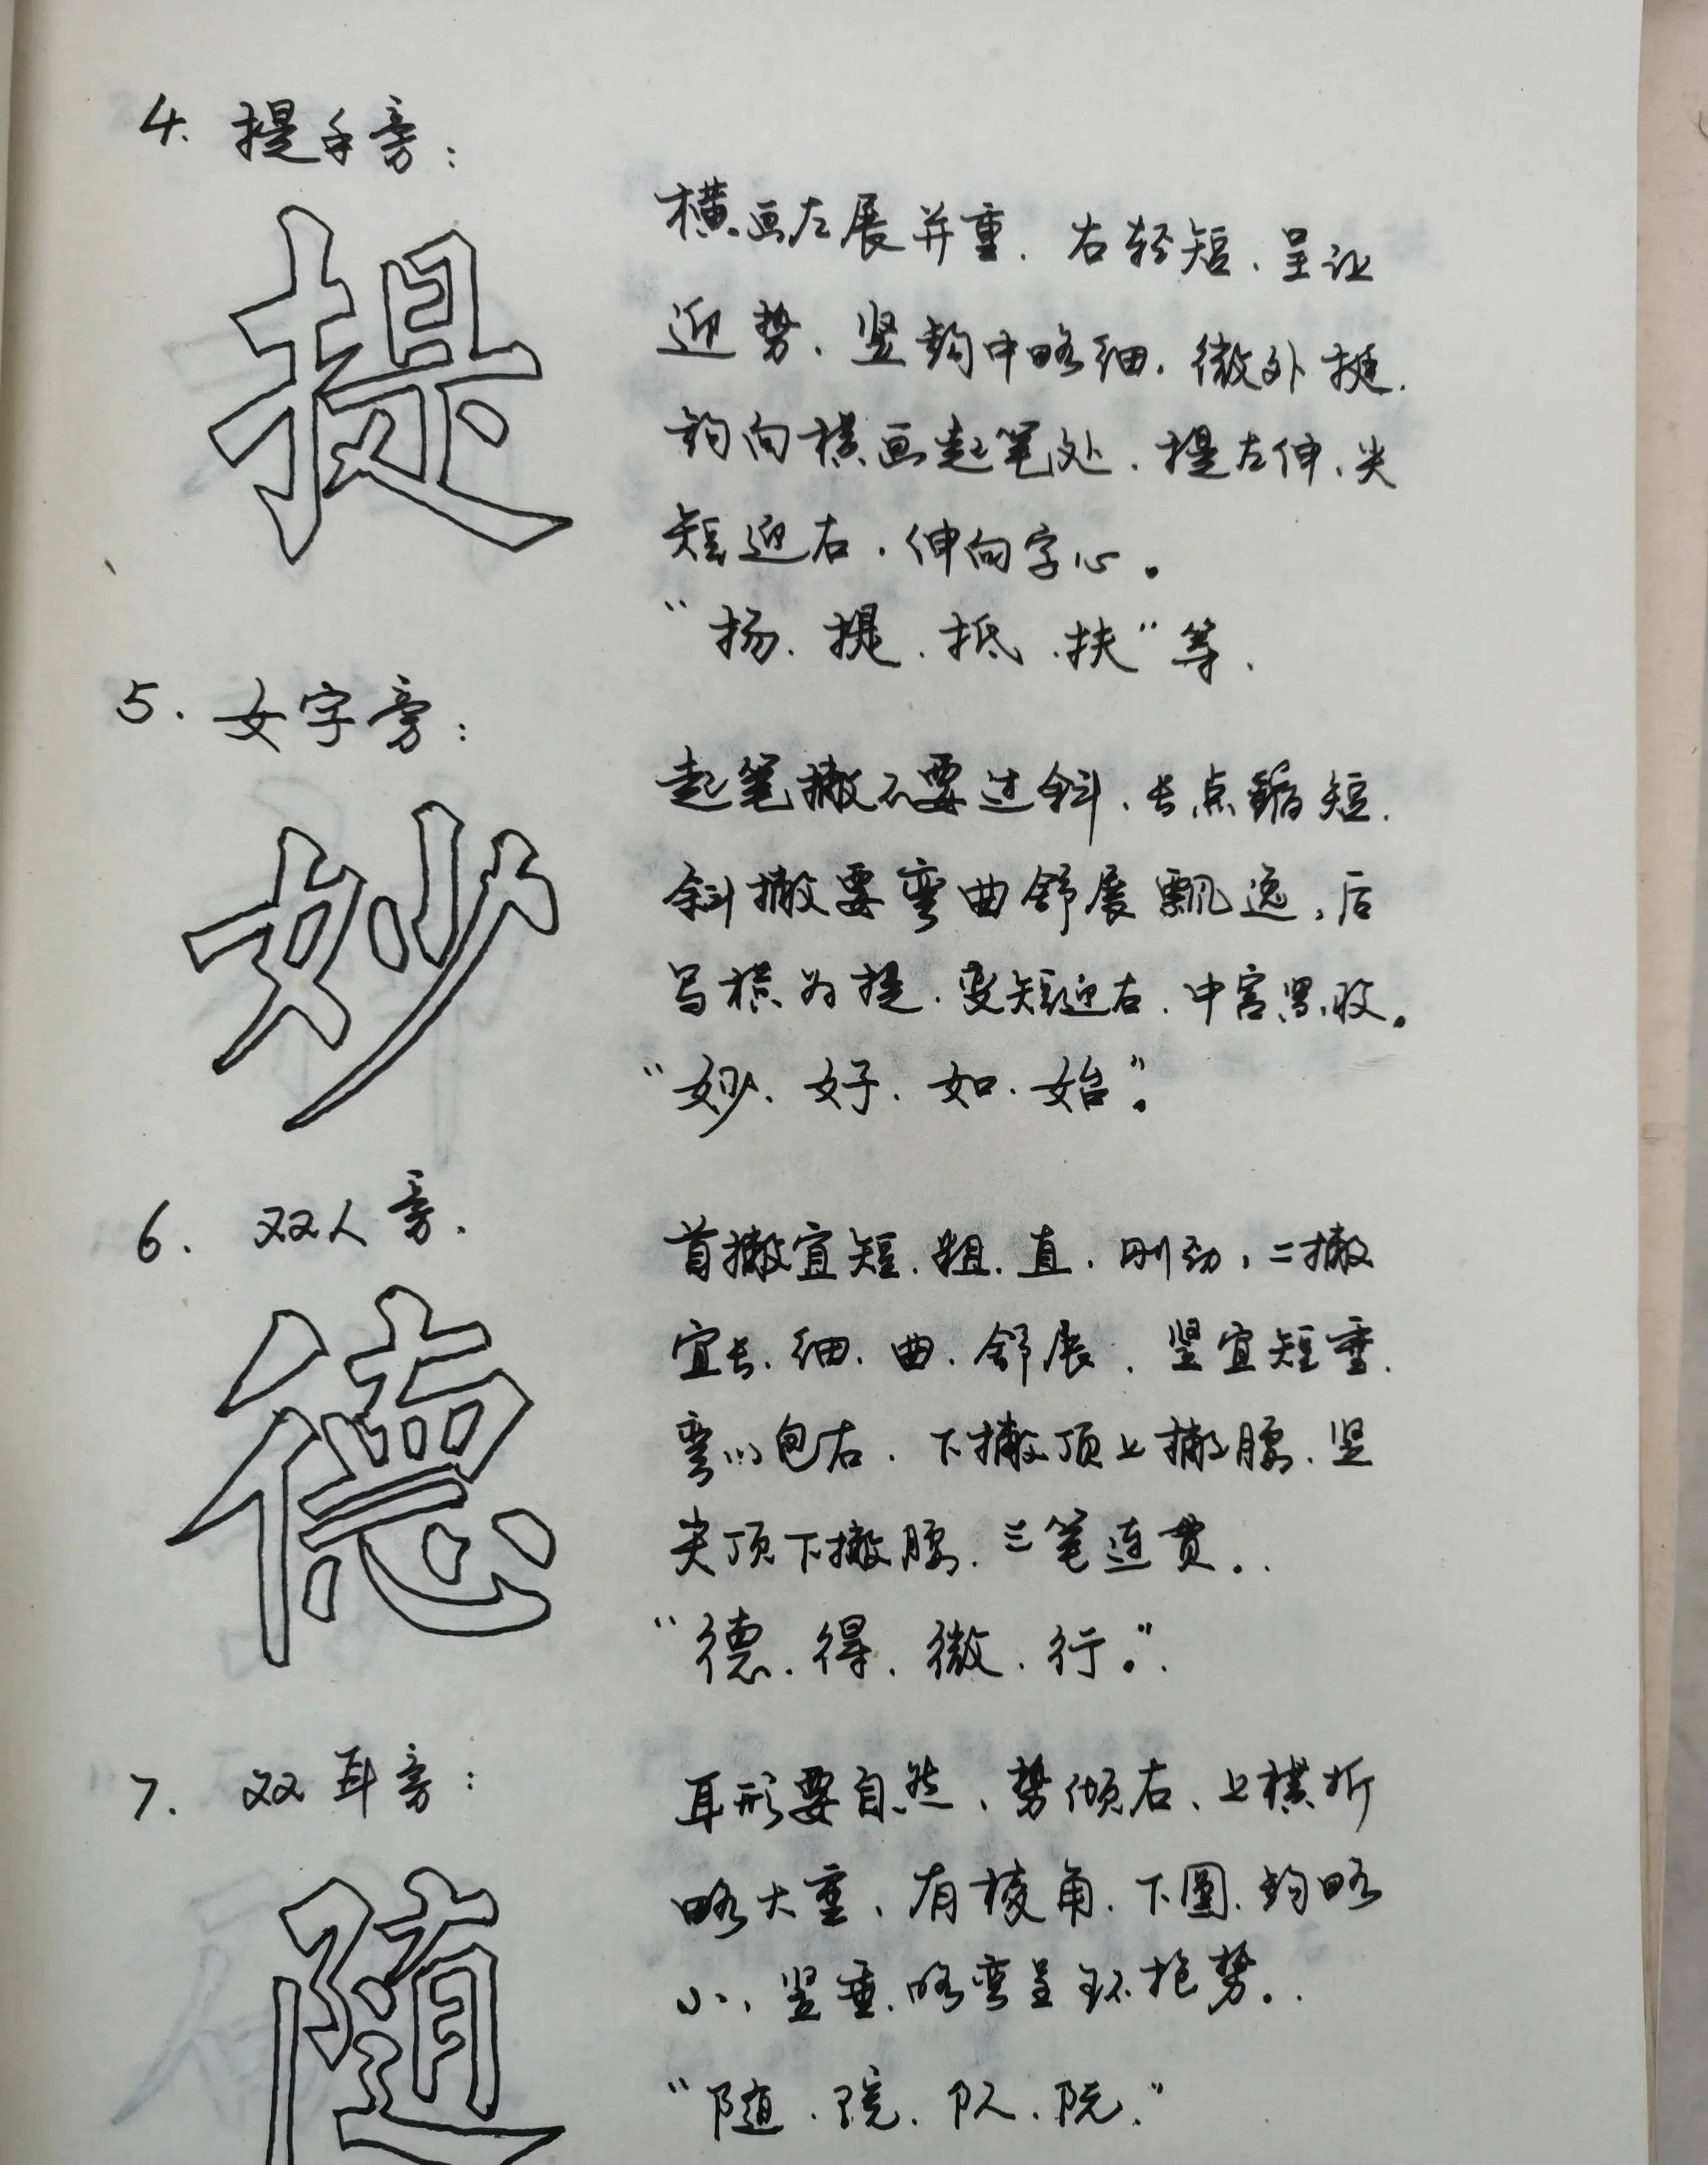 4. 提手旁：
提
横画左展并重．右轻短、呈让
迎势．竖钩中略细．微外挺．
钩向横画起笔处．提左伸、尖
短迎右．伸向字心。
“扬．提．抵．扶”等．
5. 女字旁：
妙
起笔撇不要过斜、长点缩短．
斜撇要弯曲舒展飘逸，后
写横为提．变短迎右．中宫黑收。
“妙．好．如．始”。
6. 双人旁．
德
首撇宜短．粗．直．刚劲，二撇
宜长．细．曲．舒展．竖宜短重．
弯以包右．下撇顶上撇腰．竖
尖顶下撇腰．三笔连贯。．
“德．得．微．行。”．
7. 双耳旁：
随
耳形要自然、势倾右、上横折
略大重、有棱角．下圆．钩略
小、竖垂．略弯呈环抱势。．
“随．院．队．阮．”